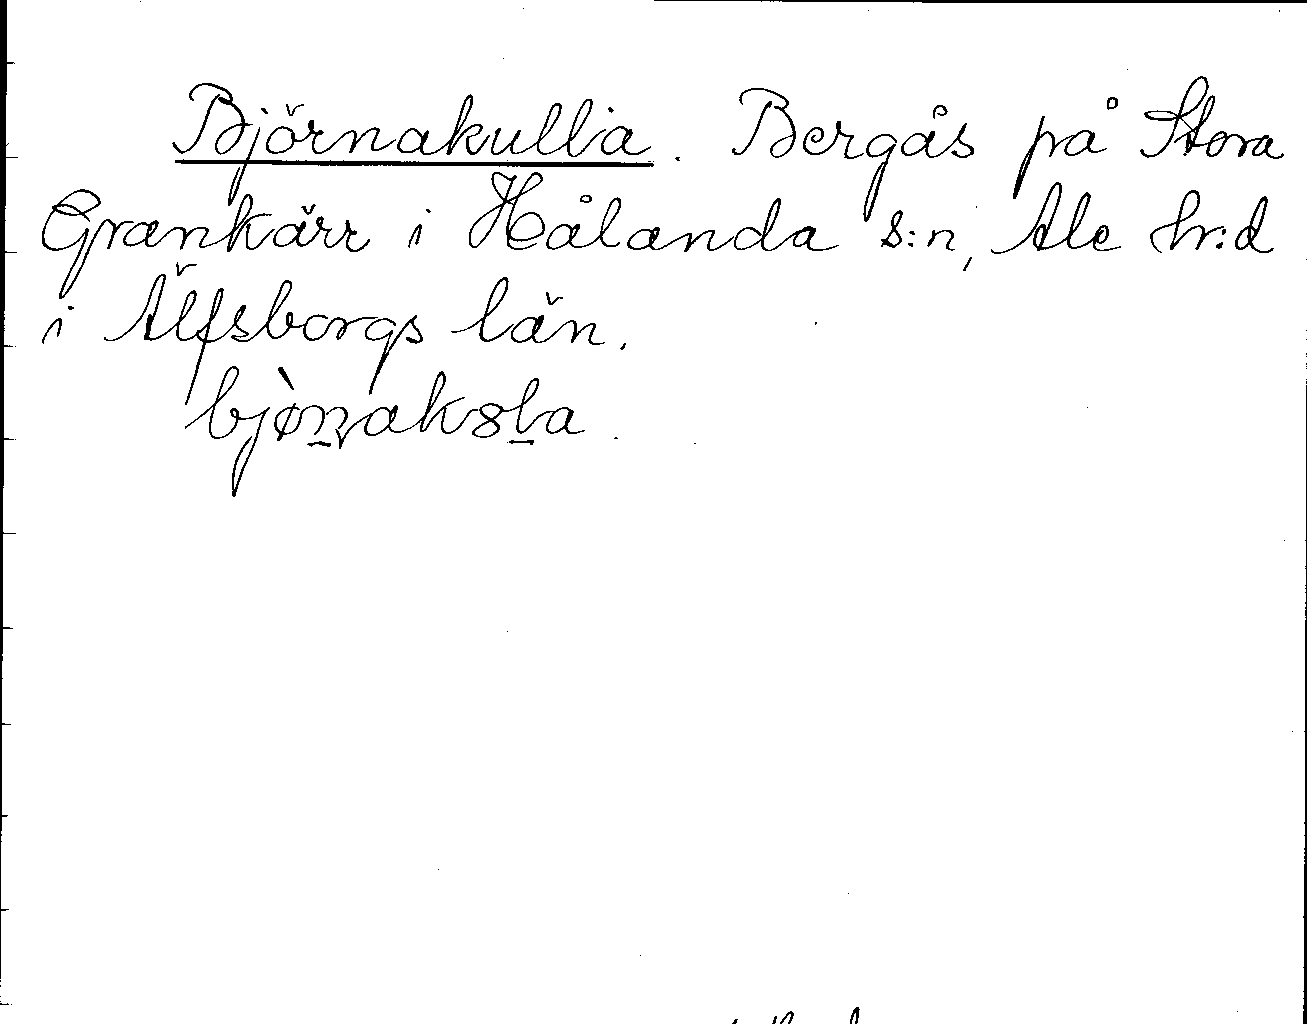 Björnakulla. Bergås på Stora
Grankärr i Hålanda s:n, Ale hr:d
i Älfsborgs län.